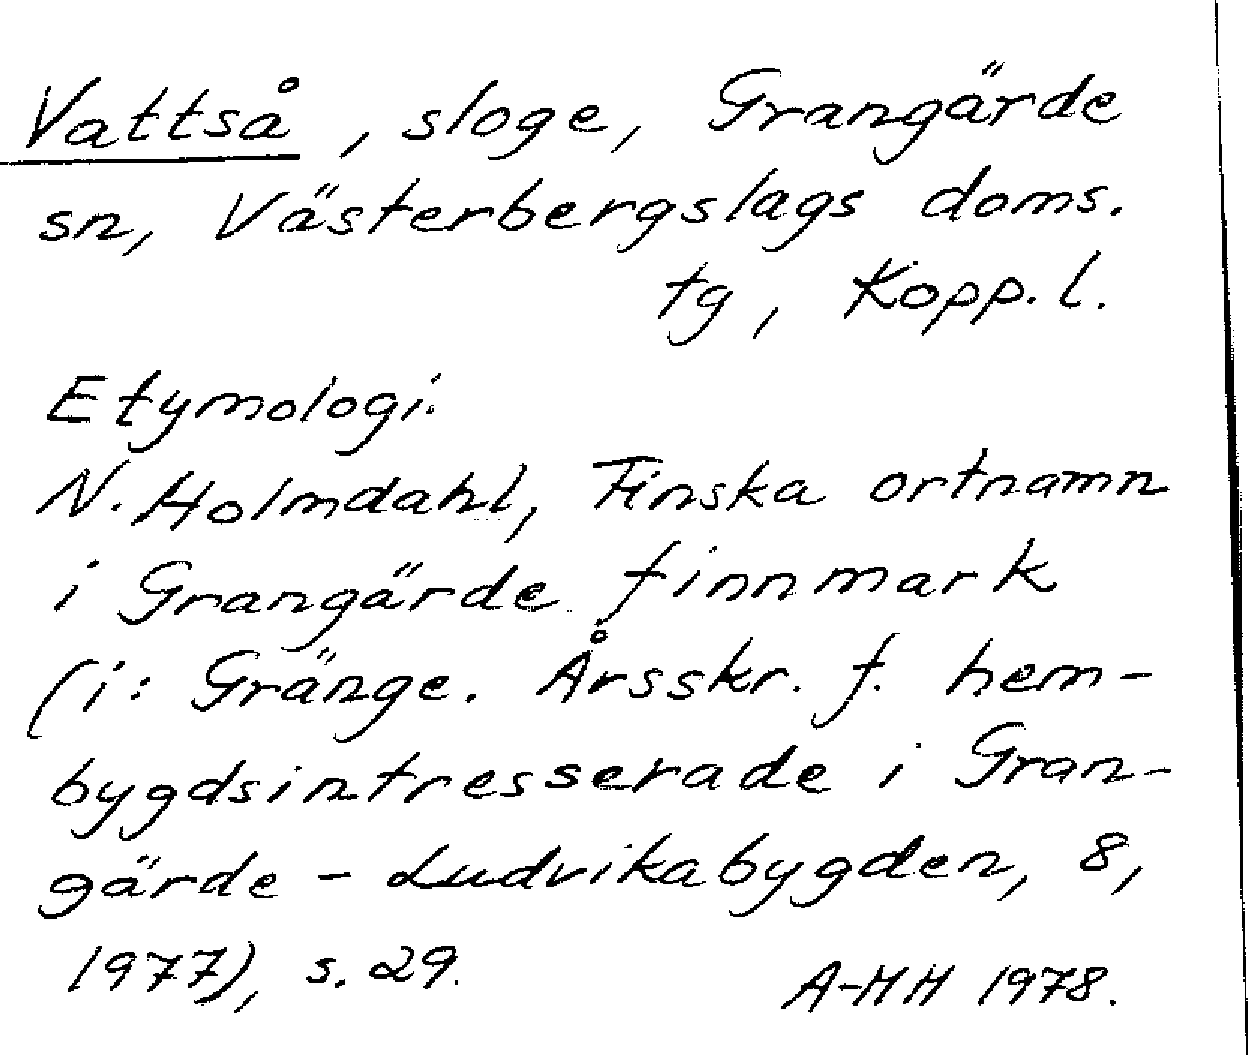 Vattså, sloge, Grangärde
sn, Västerbergslags doms.
tg, Kopp. l.
Etymologi.
N. Holmdahl, Finska ortnamn
i Grangärde finnmark
(i: Gränge. Årsskr. f. hem-
bygdsintresserade i Gran-
gärde - Ludvikabygden, 8,
1977), s. 29.
A-HH 1978.